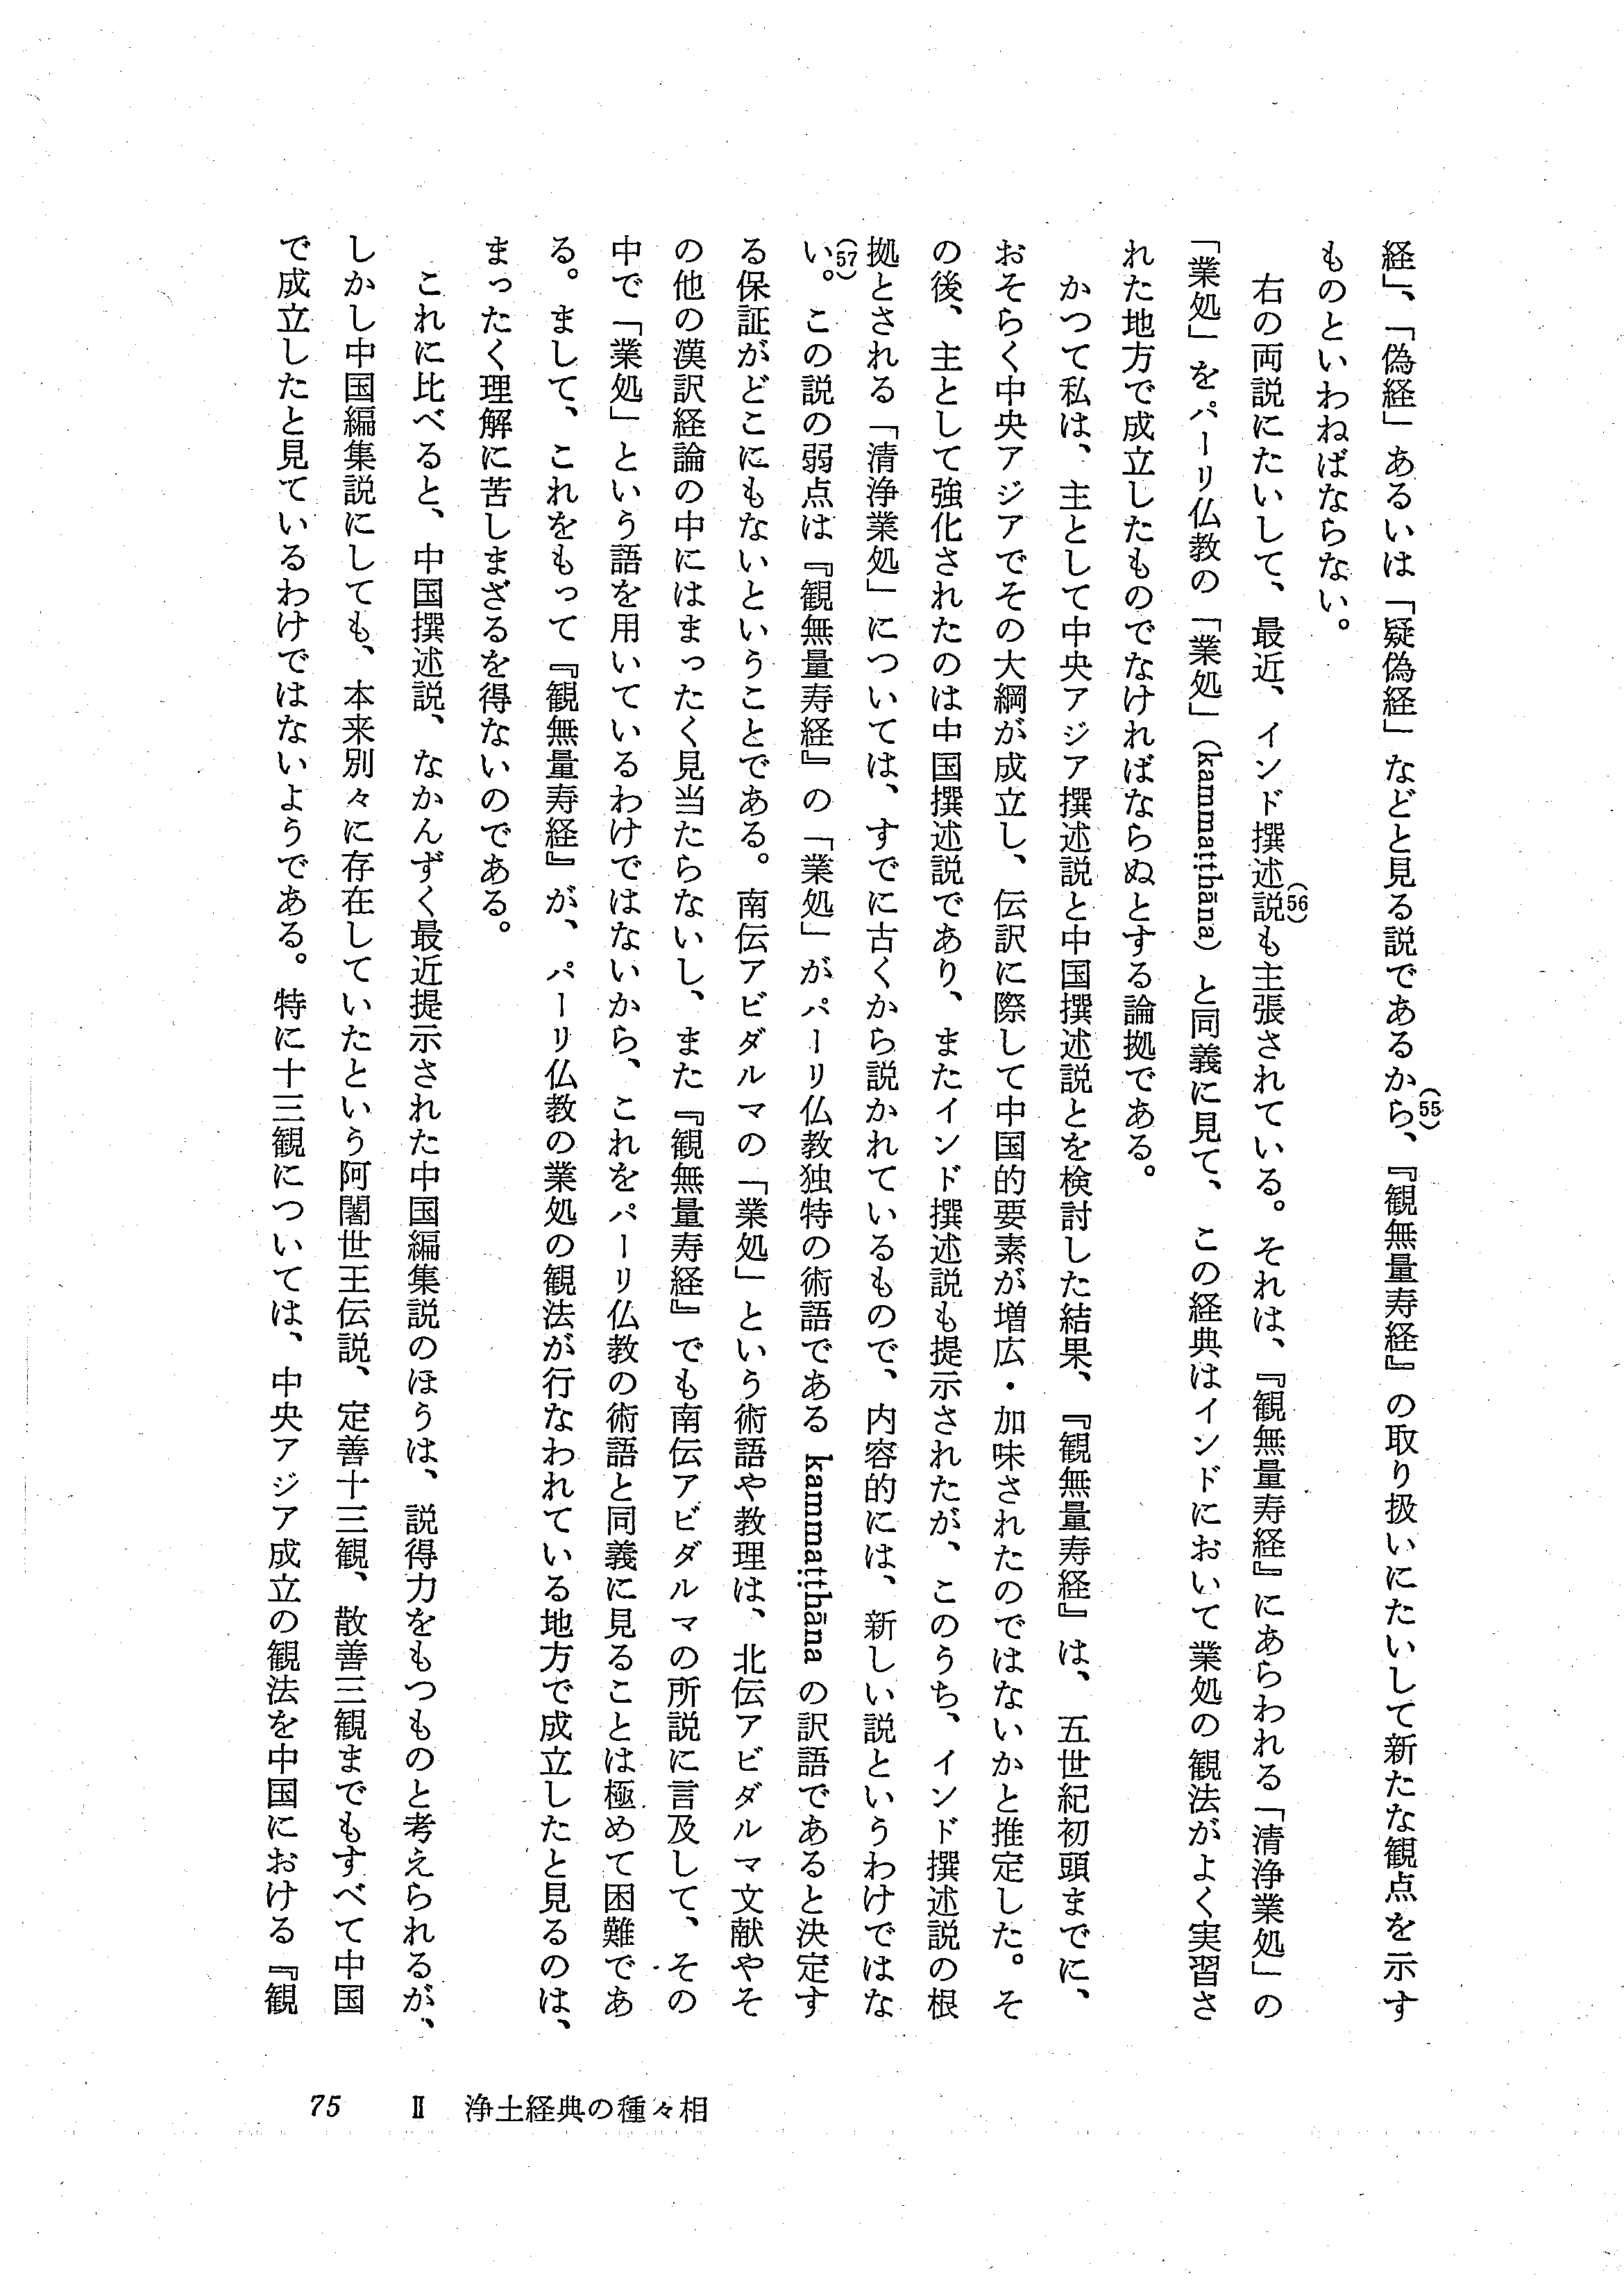 経」、「偽経」あるいは「疑偽経」などと見る説であるから、(55)『観無量寿経』の取り扱いにたいして新たな観点を示す
ものといわねばならない。
右の両説にたいして、最近、インド撰述説(56)も主張されている。それは、『観無量寿経』にあらわれる「清浄業処」の
「業処」をパーリ仏教の「業処」(kammaṭṭhāna)と同義に見て、この経典はインドにおいて業処の観法がよく実習さ
れた地方で成立したものでなければならぬとする論拠である。
かつて私は、主として中央アジア撰述説と中国撰述説とを検討した結果、『観無量寿経』は、五世紀初頭までに、
おそらく中央アジアでその大綱が成立し、伝訳に際して中国的要素が増広・加味されたのではないかと推定した。そ
の後、主として強化されたのは中国撰述説であり、またインド撰述説も提示されたが、このうち、インド撰述説の根
拠とされる「清浄業処」については、すでに古くから説かれているもので、内容的には、新しい説というわけではな
い。(57)この説の弱点は『観無量寿経』の「業処」がパーリ仏教独特の術語である kammaṭṭhāna の訳語であると決定す
る保証がどこにもないということである。南伝アビダルマの「業処」という術語や教理は、北伝アビダルマ文献やそ
の他の漢訳経論の中にはまったく見当たらないし、また『観無量寿経』でも南伝アビダルマの所説に言及して、その
中で「業処」という語を用いているわけではないから、これをパーリ仏教の術語と同義に見ることは極めて困難であ
る。まして、これをもって『観無量寿経』が、パーリ仏教の業処の観法が行なわれている地方で成立したと見るのは、
まったく理解に苦しまざるを得ないのである。
これに比べると、中国撰述説、なかんずく最近提示された中国編集説のほうは、説得力をもつものと考えられるが、
しかし中国編集説にしても、本来別々に存在していたという阿闍世王伝説、定善十三観、散善三観までもすべて中国
で成立したと見ているわけではないようである。特に十三観については、中央アジア成立の観法を中国における『観
75 Ⅱ 浄土経典の種々相